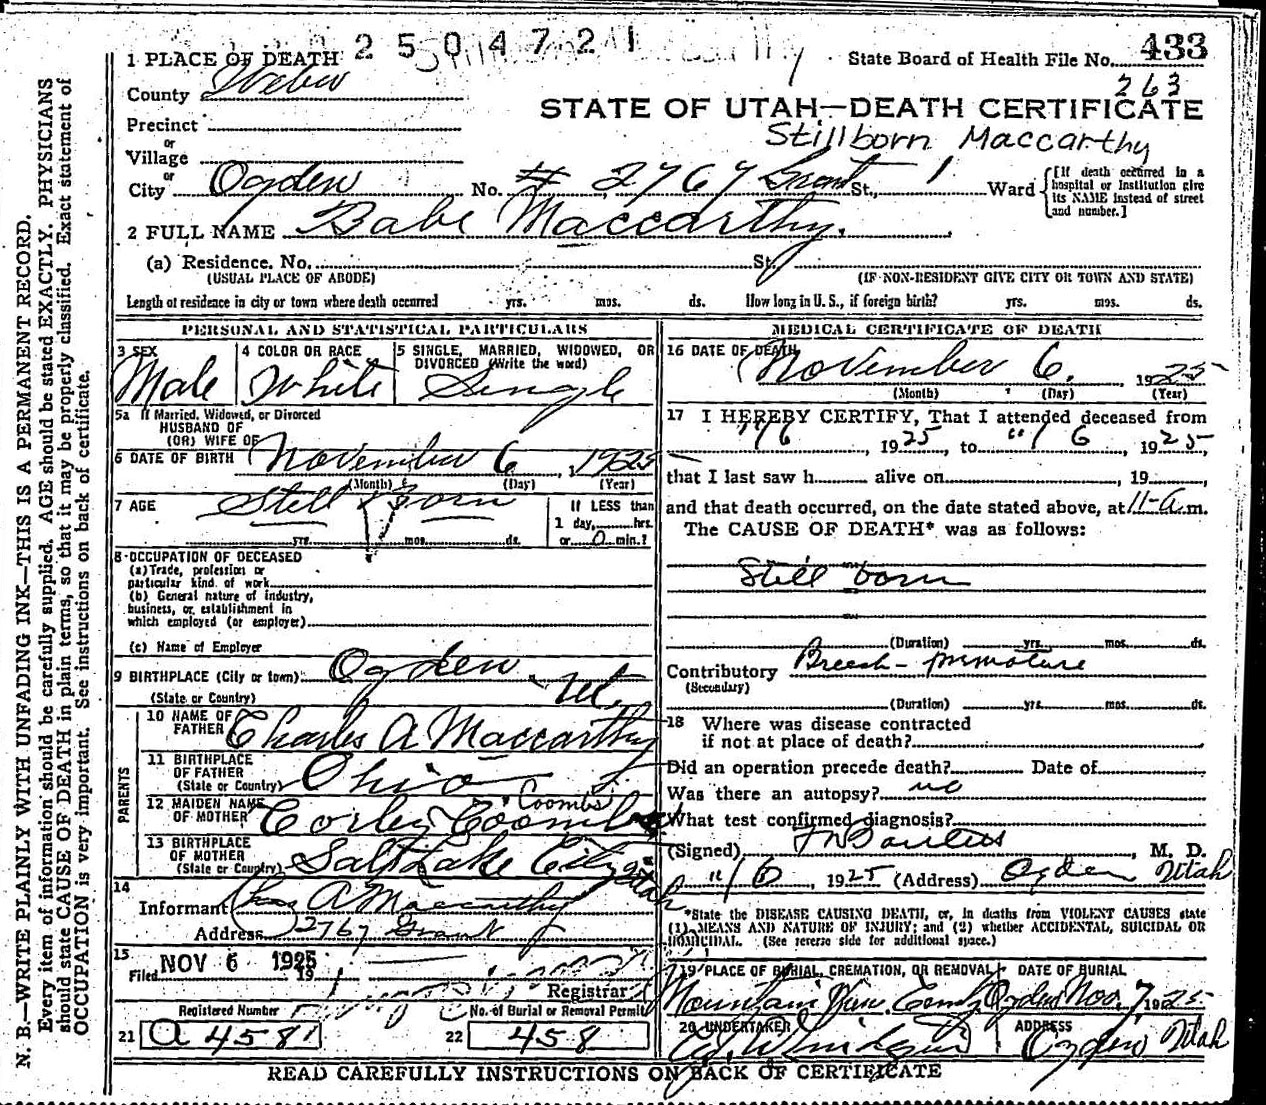 2504721
1 PLACE OF DEATH
State Board of Health File No. 433
263
County Weber
STATE OF UTAH—DEATH CERTIFICATE
Precinct
Stillborn Maccarthy
or
Village
or
City Ogden No. # 2767 Grant St., 1 Ward
[If death occurred in a hospital or institution give its NAME instead of street and number.]
2 FULL NAME Babe Maccarthy.
(a) Residence. No. St.
(USUAL PLACE OF ABODE) (IF NON-RESIDENT GIVE CITY OR TOWN AND STATE)
Length of residence in city or town where death occurred yrs. mos. ds. How long in U. S., if foreign birth? yrs. mos. ds.
PERSONAL AND STATISTICAL PARTICULARS
3 SEX
Male
4 COLOR OR RACE
White
5 SINGLE, MARRIED, WIDOWED, OR DIVORCED (Write the word)
Single
5a If Married, Widowed, or Divorced
HUSBAND OF
(OR) WIFE OF
6 DATE OF BIRTH November 6, 1925
(Month) (Day) (Year)
7 AGE Still Born
yrs. mos. ds.
If LESS than
1 day, hrs.
or 0 min.?
8 OCCUPATION OF DECEASED
(a) Trade, profession or
particular kind of work
(b) General nature of industry,
business, or establishment in
which employed (or employer)
(c) Name of Employer
9 BIRTHPLACE (City or town) Ogden
(State or Country) Ut.
PARENTS
10 NAME OF FATHER Charles A Maccarthy
11 BIRTHPLACE OF FATHER
(State or Country) Ohio
12 MAIDEN NAME OF MOTHER Corley Coombs
Coombs
13 BIRTHPLACE OF MOTHER
(State or Country) Salt Lake City Utah
14
Informant Chas A Maccarthy
Address 2767 Grant
15
Filed NOV 6 1925 19
Registrar
Registered Number
21 A 4581
No. of Burial or Removal Permit
22 458
MEDICAL CERTIFICATE OF DEATH
16 DATE OF DEATH
November 6, 1925
(Month) (Day) (Year)
17 I HEREBY CERTIFY, That I attended deceased from
11/6 1925 to 11/6 1925,
that I last saw h alive on , 19
and that death occurred, on the date stated above, at 11-A m.
The CAUSE OF DEATH* was as follows:
Still born
(Duration) yrs. mos. ds.
Contributory Breech - premature
(Secondary)
(Duration) yrs. mos. ds.
18 Where was disease contracted
if not at place of death?
Did an operation precede death? Date of
Was there an autopsy? no
What test confirmed diagnosis?
(Signed) , M. D.
11/6 1925 (Address) Ogden Utah
*State the DISEASE CAUSING DEATH, or, in deaths from VIOLENT CAUSES state
(1) MEANS AND NATURE OF INJURY; and (2) whether ACCIDENTAL, SUICIDAL OR
HOMICIDAL. (See reverse side for additional space.)
19 PLACE OF BURIAL, CREMATION, OR REMOVAL
Mountain View Cemty Ogden
DATE OF BURIAL
Nov. 7, 1925
20 UNDERTAKER
ADDRESS
Ogden Utah
READ CAREFULLY INSTRUCTIONS ON BACK OF CERTIFICATE
N. B.—WRITE PLAINLY WITH UNFADING INK—THIS IS A PERMANENT RECORD.
Every item of information should be carefully supplied. AGE should be stated EXACTLY. PHYSICIANS
should state CAUSE OF DEATH in plain terms, so that it may be properly classified. Exact statement of
OCCUPATION is very important. See instructions on back of certificate.